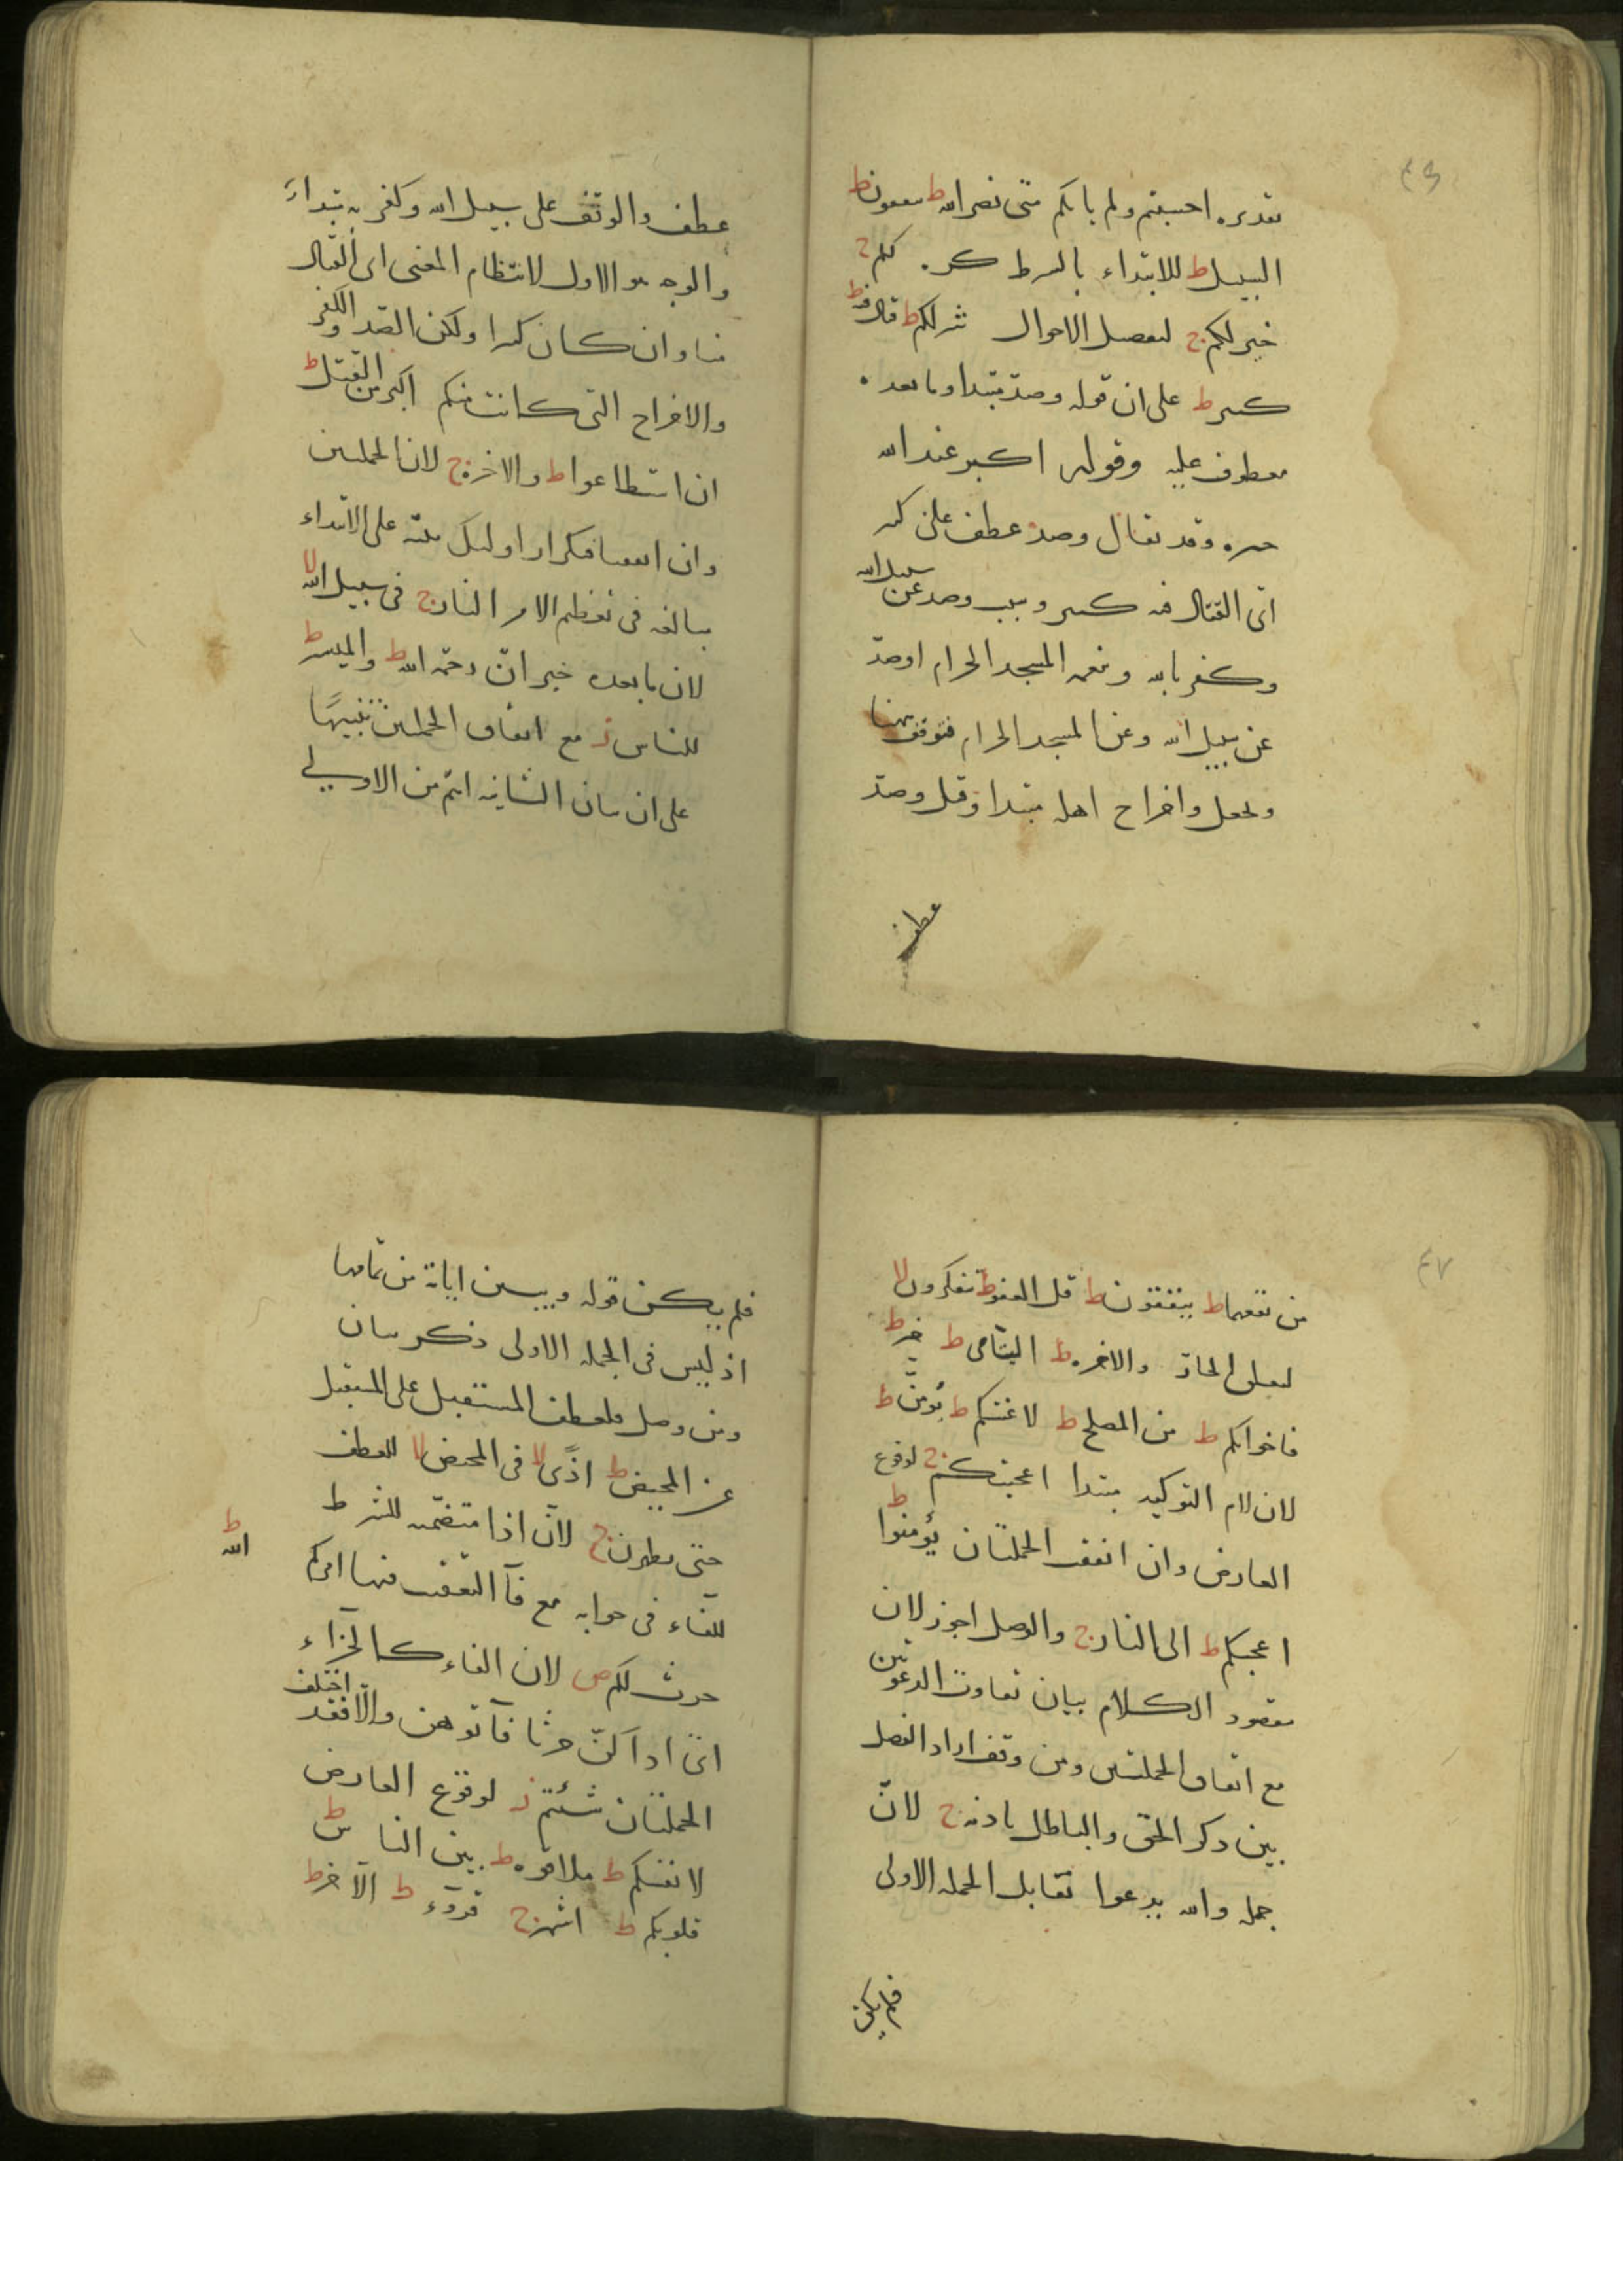 تقديره احسبتم ولم ياتكم متى نصر الله ط ينفقون ط
السبيل ط للابتداء بالشرط كره لكم ج
خير لكم ج لتفصيل الاحوال شر لكم ط قتال فيه ط
كبير ط على ان قوله وصدّ مبتدا وما بعده
معطوف عليه وقوله اكبر عند الله
خبره وقد يقال وصد عطف على كبير
اى القتال فيه كبير وسبب وصد عن سبيل الله
وكفر بالله و المسجد الحرام او صدّ
عن سبيل الله وعن المسجد الحرام فتوقف هنا
ويجعل واخراج اهله مبتدا وقيل وصدّ
عطف
عطف والوقف على سبيل الله وكفر به مبتداء
والوجه هو الاول لانتظام المعنى اى القتال
منا وان كان كبيرا ولكن الصد والكفر
والاخراج التى كانت منكم اكبر من القتل ط
ان استطاعوا ط والاخرة ج لان الجملتين
وان اتفقتا فتكرار اولئك على الابتداء
مبالغة فى تعظيم الامر النار ج فى سبيل الله لا
لان ما بعده خبر انّ رحمة الله ط والميسر ط
للناس ز مع اتفاق الجملتين تنبيهًا
على ان بيان الثانية اتم من الاولى
٤٧
من نفعهما ط ينفقون ط قل العفو ط تتفكرون لا
لتعلق الجار والاخرة ط اليتامى ط خير ط
فاخوانكم ط من المصلح ط لاعنتكم ط يؤمنّ ط
لان لام التوكيد مبتدا اعجبتكم ج لوقوع
العارض وان اتفقت الجملتان يؤمنوا ط
اعجبكم ط الى النار ج والوصل اجوز لان
مقصود الكلام بيان تفاوت الدعوتين
مع اتفاق الجملتين ومن وقف اراد الفصل
بين ذكر الحق والباطل باذنه ج لانّ
جملة والله يدعوا تقابل الجملة الاولى
فلم يكن
فلم يكن قوله ويبين اياته من تمامها
اذ ليس فى الجملة الاولى ذكر بيان
ومن وصل فلعطف المستقبل على المستقبل
عن المحيض ط اذًى لا فى المحيض لا للعطف
حتى يطهرن ج لانّ اذا متضمنة للشرط
للفاء فى جوابه مع فآ التعقيب فيها امركم
الله ط
حرث لكم ص لان الفاء كالجزاء
اى اذا كنّ حرثا فآتوهن والّا فقد اختلف
الجملتان شئتم ز لوقوع العارض
لانفسكم ط ملاقوه ط بين الناس ط
قلوبكم ط اشهر ج قروء ط الآخر ط